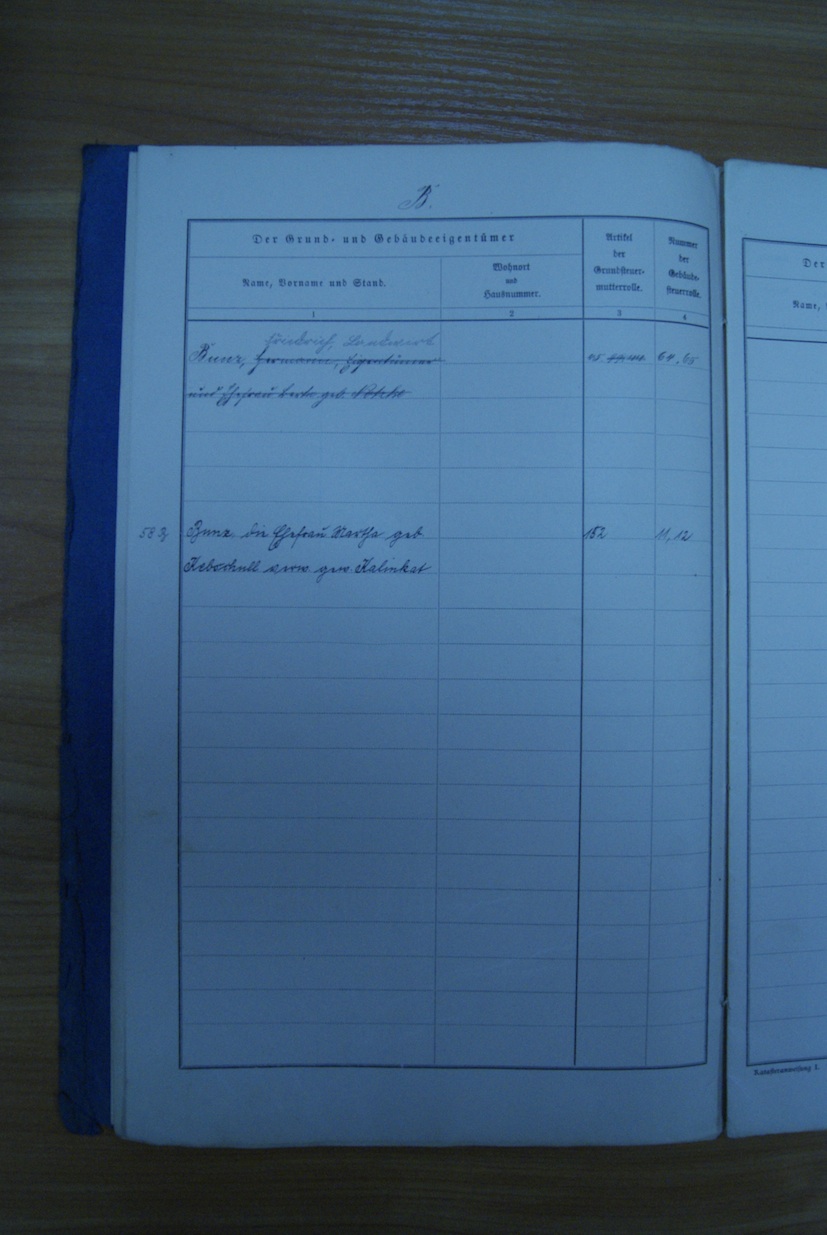 B.
Der Grund- und Gebäudeeigentümer
Name, Vorname und Stand.
Wohnort
und
Hausnummer.
Artikel
der
Grundsteuer-
mutterrolle.
Nummer
der
Gebäude-
steuerrolle.
1
2
3
4
Friedrich, Landwirt
Bunz, Hermann, Eigentümer
64, 65
und Ehefrau geb.
58
Bunz die Ehefrau Martha geb
152
11, 12
verw gew Kalinkat
Der
Name,
Katasteranweisung I.